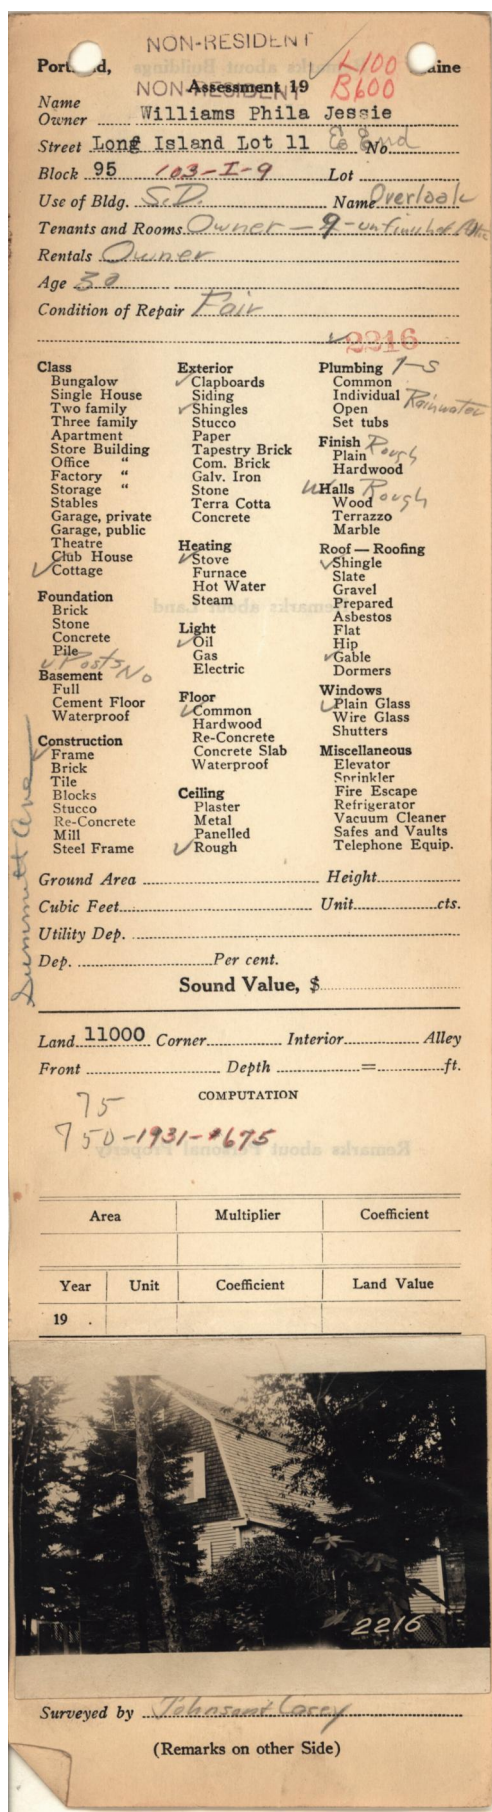 NON-RESIDENT
Portland, Maine
L100
NON-RESIDENT
Assessment 19
B600
Name
Owner Williams Phila Jessie
Street Long Island Lot 11 E End No.
Block 95 103-I-9 Lot
Use of Bldg. S.D. Name Overlook
Tenants and Rooms Owner - 9 - unfinished Attic
Rentals Owner
Age 30
Condition of Repair Fair
2216
Class
Bungalow
Single House
Two family
Three family
Apartment
Store Building
Office "
Factory "
Storage "
Stables
Garage, private
Garage, public
Theatre
Club House
✓ Cottage
Foundation
Brick
Stone
Concrete
Pile
✓ Posts
Basement No
Full
Cement Floor
Waterproof
Construction
✓ Frame
Brick
Tile
Blocks
Stucco
Re-Concrete
Mill
Steel Frame
Summitt Ave
Exterior
✓ Clapboards
Siding
✓ Shingles
Stucco
Paper
Tapestry Brick
Com. Brick
Galv. Iron
Stone
Terra Cotta
Concrete
Heating
✓ Stove
Furnace
Hot Water
Steam
Light
✓ Oil
Gas
Electric
Floor
✓ Common
Hardwood
Re-Concrete
Concrete Slab
Waterproof
Ceiling
Plaster
Metal
Panelled
✓ Rough
Plumbing 1-S
Common
Individual Rainwater
Open
Set tubs
Finish Rough
Plain
Hardwood
Halls Rough
Wood
Terrazzo
Marble
Roof — Roofing
✓ Shingle
Slate
Gravel
Prepared
Asbestos
Flat
Hip
✓ Gable
Dormers
Windows
✓ Plain Glass
Wire Glass
Shutters
Miscellaneous
Elevator
Sprinkler
Fire Escape
Refrigerator
Vacuum Cleaner
Safes and Vaults
Telephone Equip.
Ground Area Height
Cubic Feet Unit cts.
Utility Dep.
Dep. Per cent.
Sound Value, $
Land 11000 Corner Interior Alley
Front Depth = ft.
COMPUTATION
75
750-1931-$675
Area Multiplier Coefficient
Year Unit Coefficient Land Value
19 .
2216
Surveyed by Johnson & Casey
(Remarks on other Side)